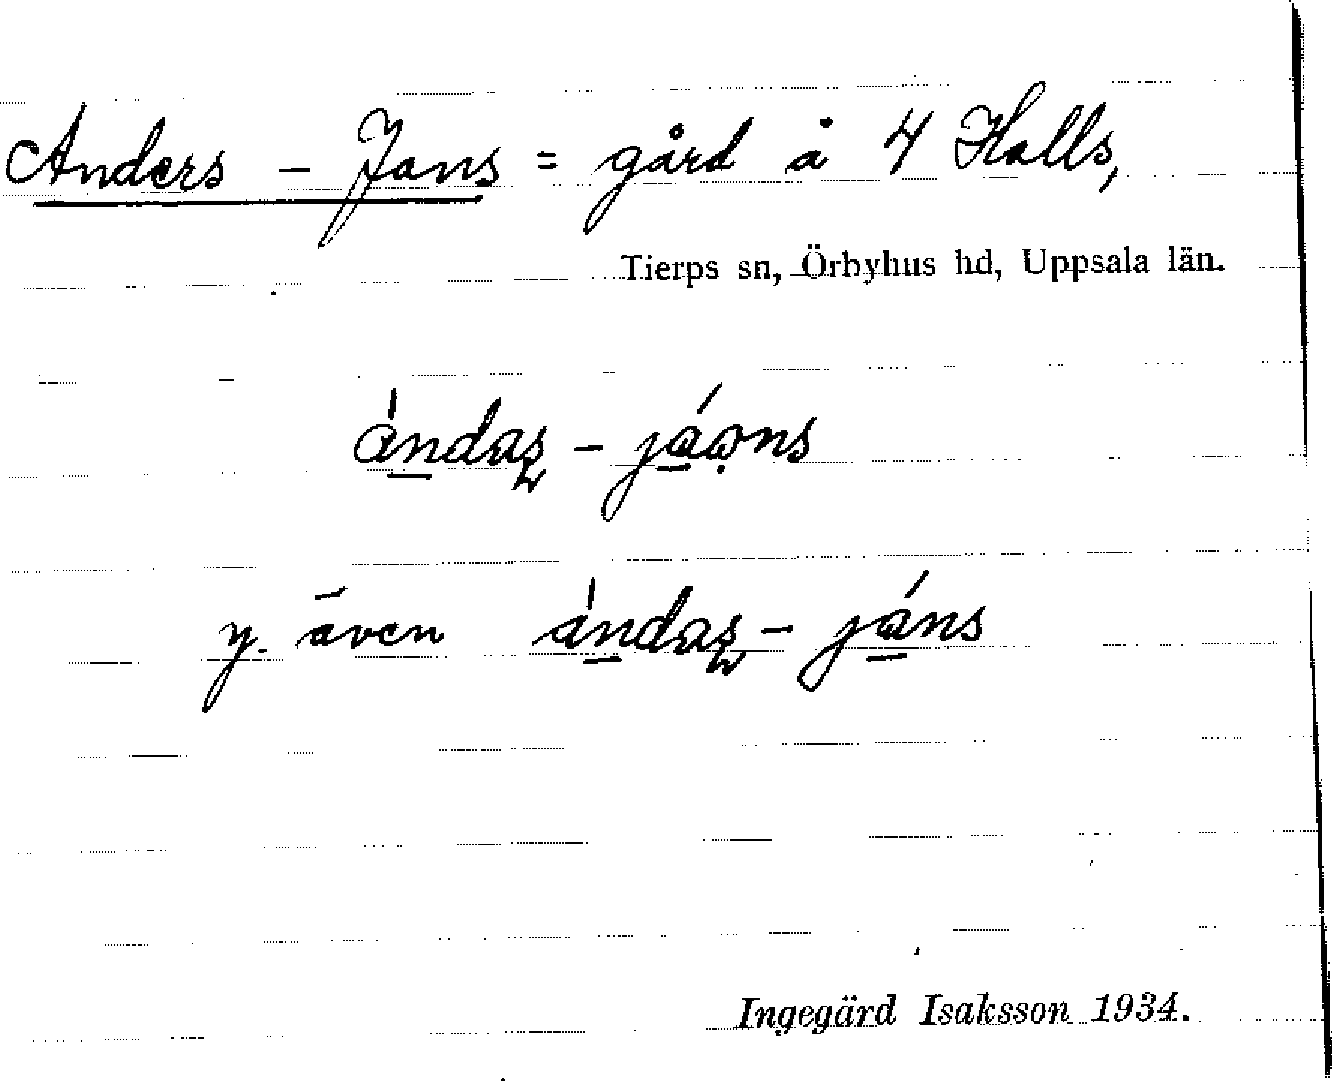 Anders - Jans = gård å 4 Halls,
Tierps sn, Örbyhus hd, Uppsala län.
ándaʂ - jáɷns
y. även ándaʂ - jáns
Ingegärd Isaksson 1934.